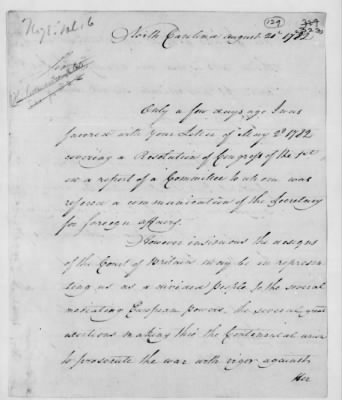 129
North Carolina August 20th 1782
Only a few days ago I was
favored with your Letter of May 2d 1782
covering a Resolution of Congress of the 1st
on a report of a Committee to whom was
refered a communication of the Secretary
for foreign affairs.
However insidious the designs
of the Court of Britain may be in represen
ting us as a divided people, to the several
mediating European powers, the several great
exertions making thro the Continental
to prosecute the war with vigor against
Her